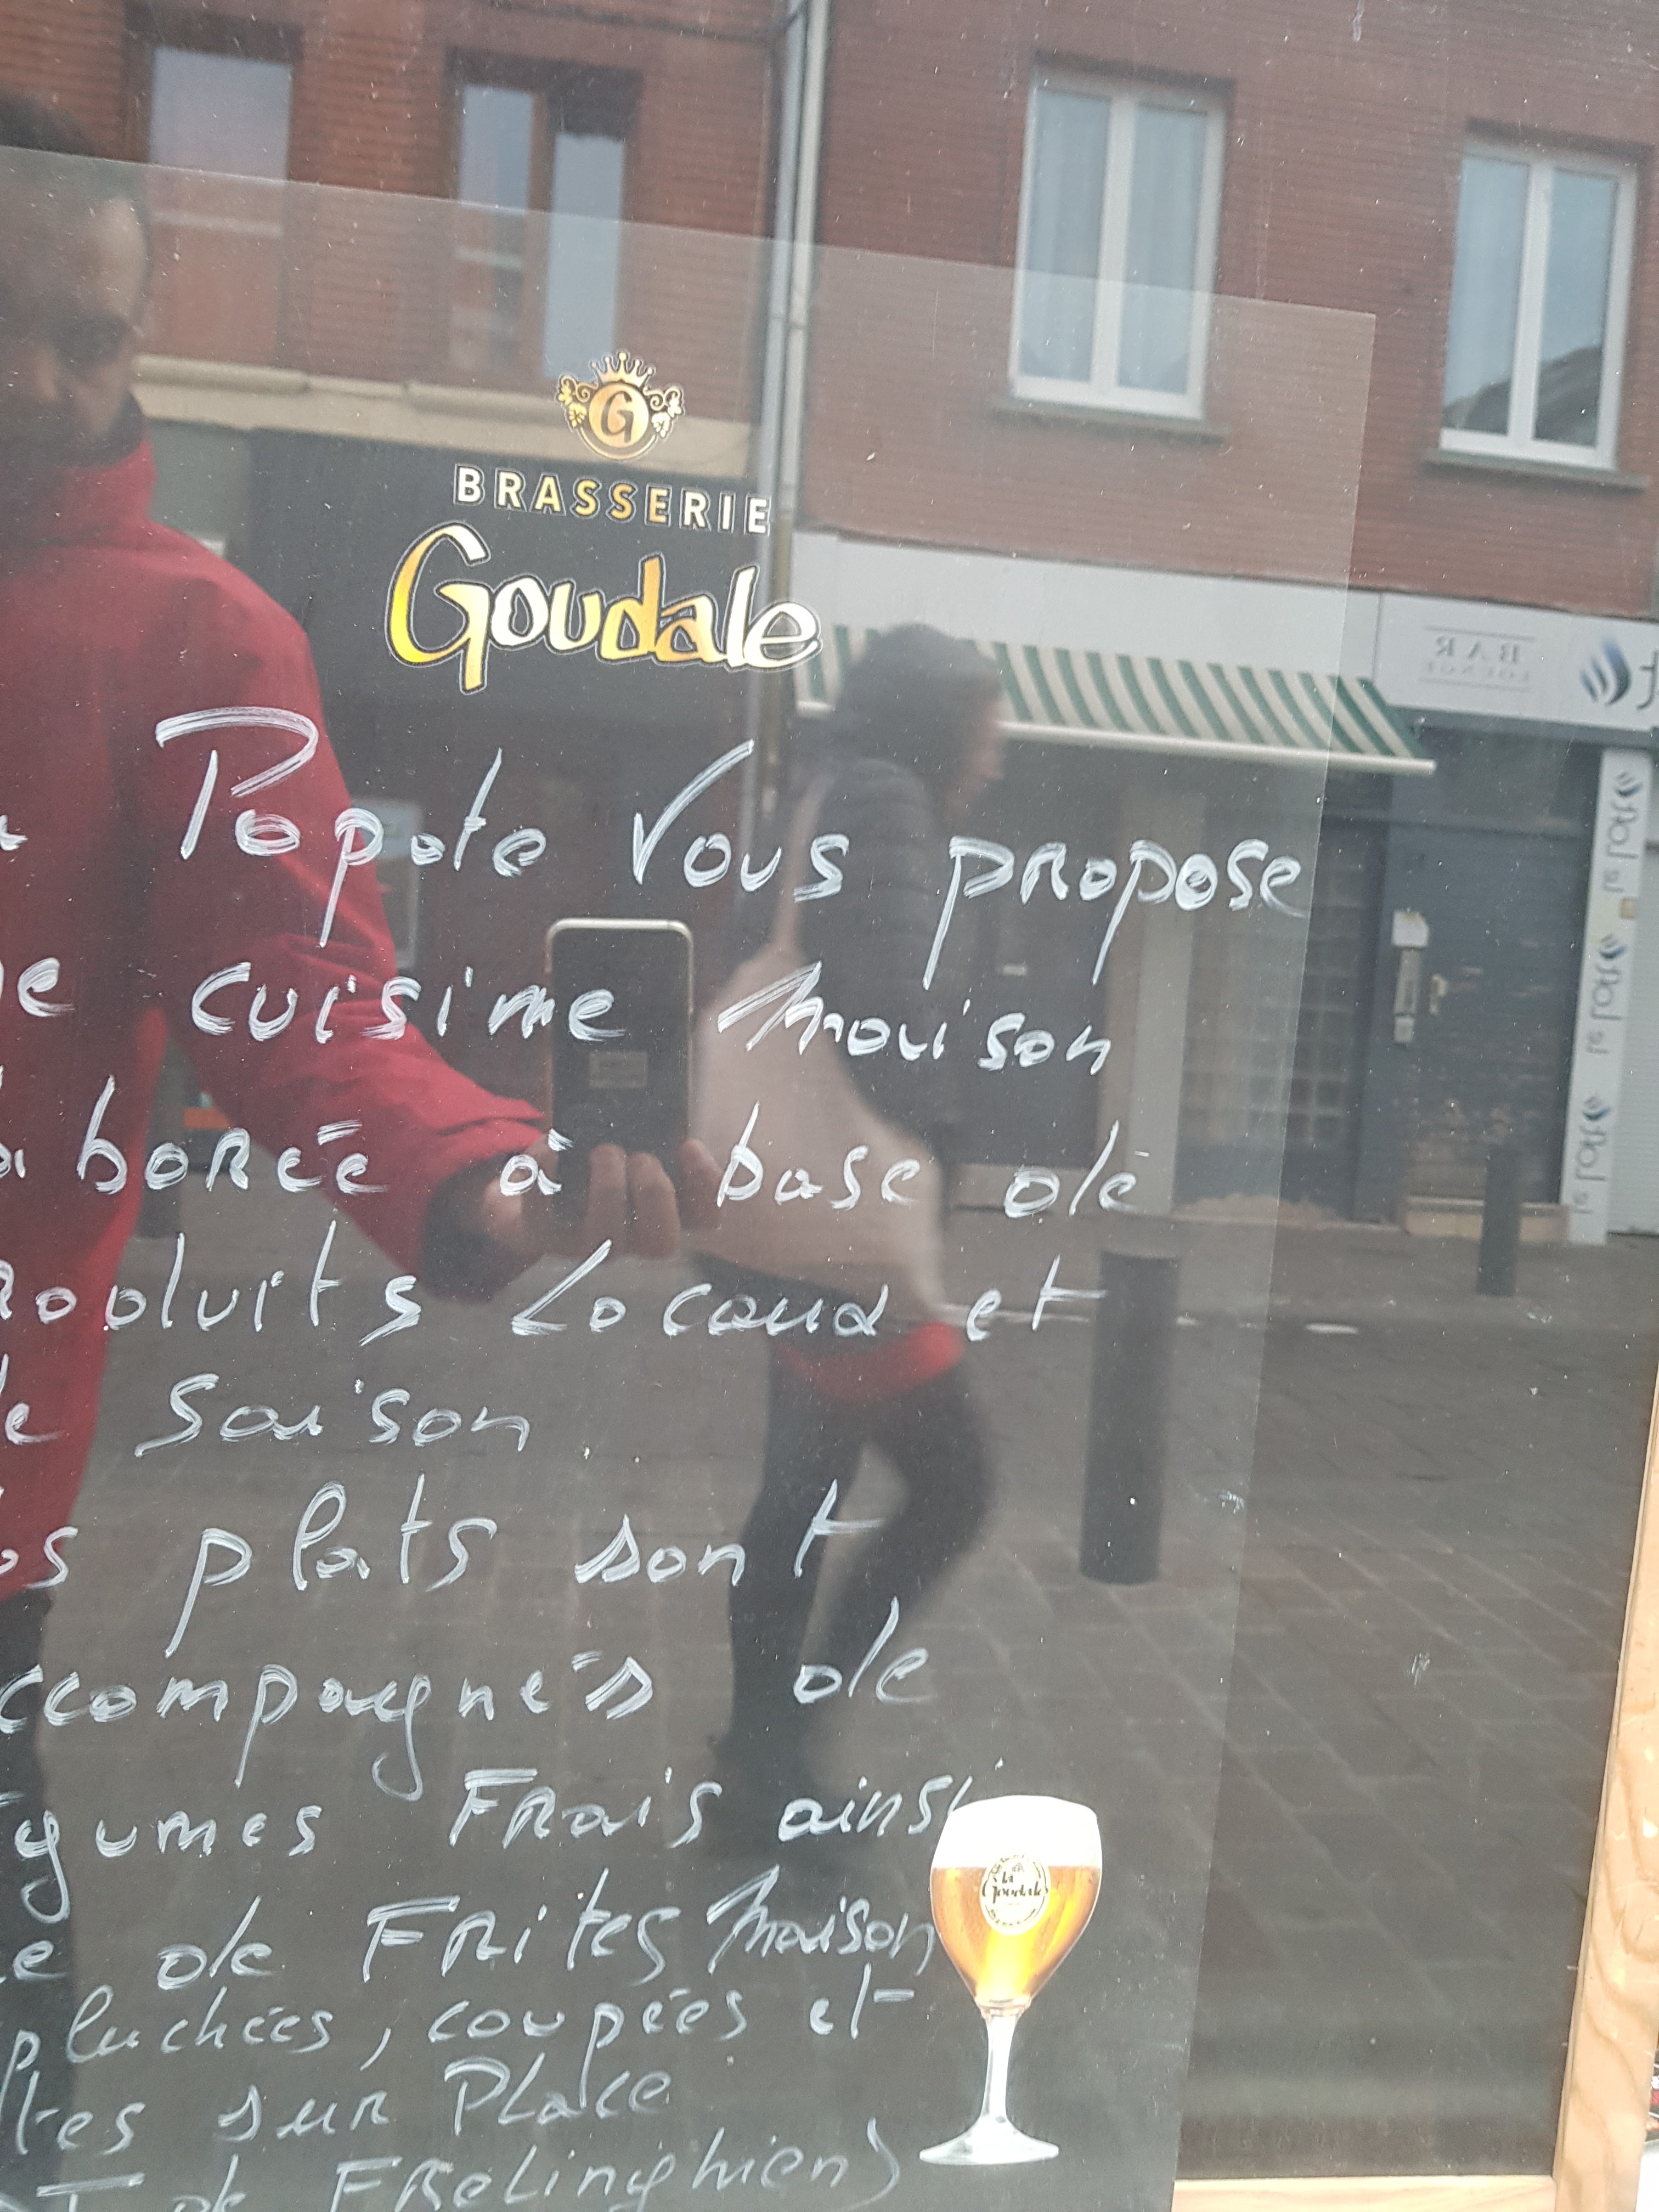 G
BRASSERIE
Goudale
Popote Vous propose
e cuisine maison
aborée à base de
roduits Locaux et
de saison.
os plats sont
ccompagnés de
gumes Frais ainsi
e de FRites maison
pluchées, coupées et
tes sur Place
de FRelinghien)
la Goudale
BAR
LOUNGE
le loft
le loft
le loft